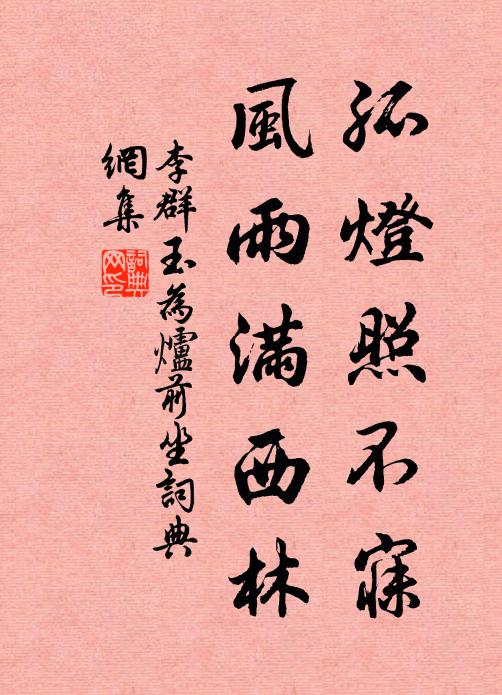 孤燈照不寐
風雨滿西林
李群玉為爐前坐詞典
網集
詞典
网印